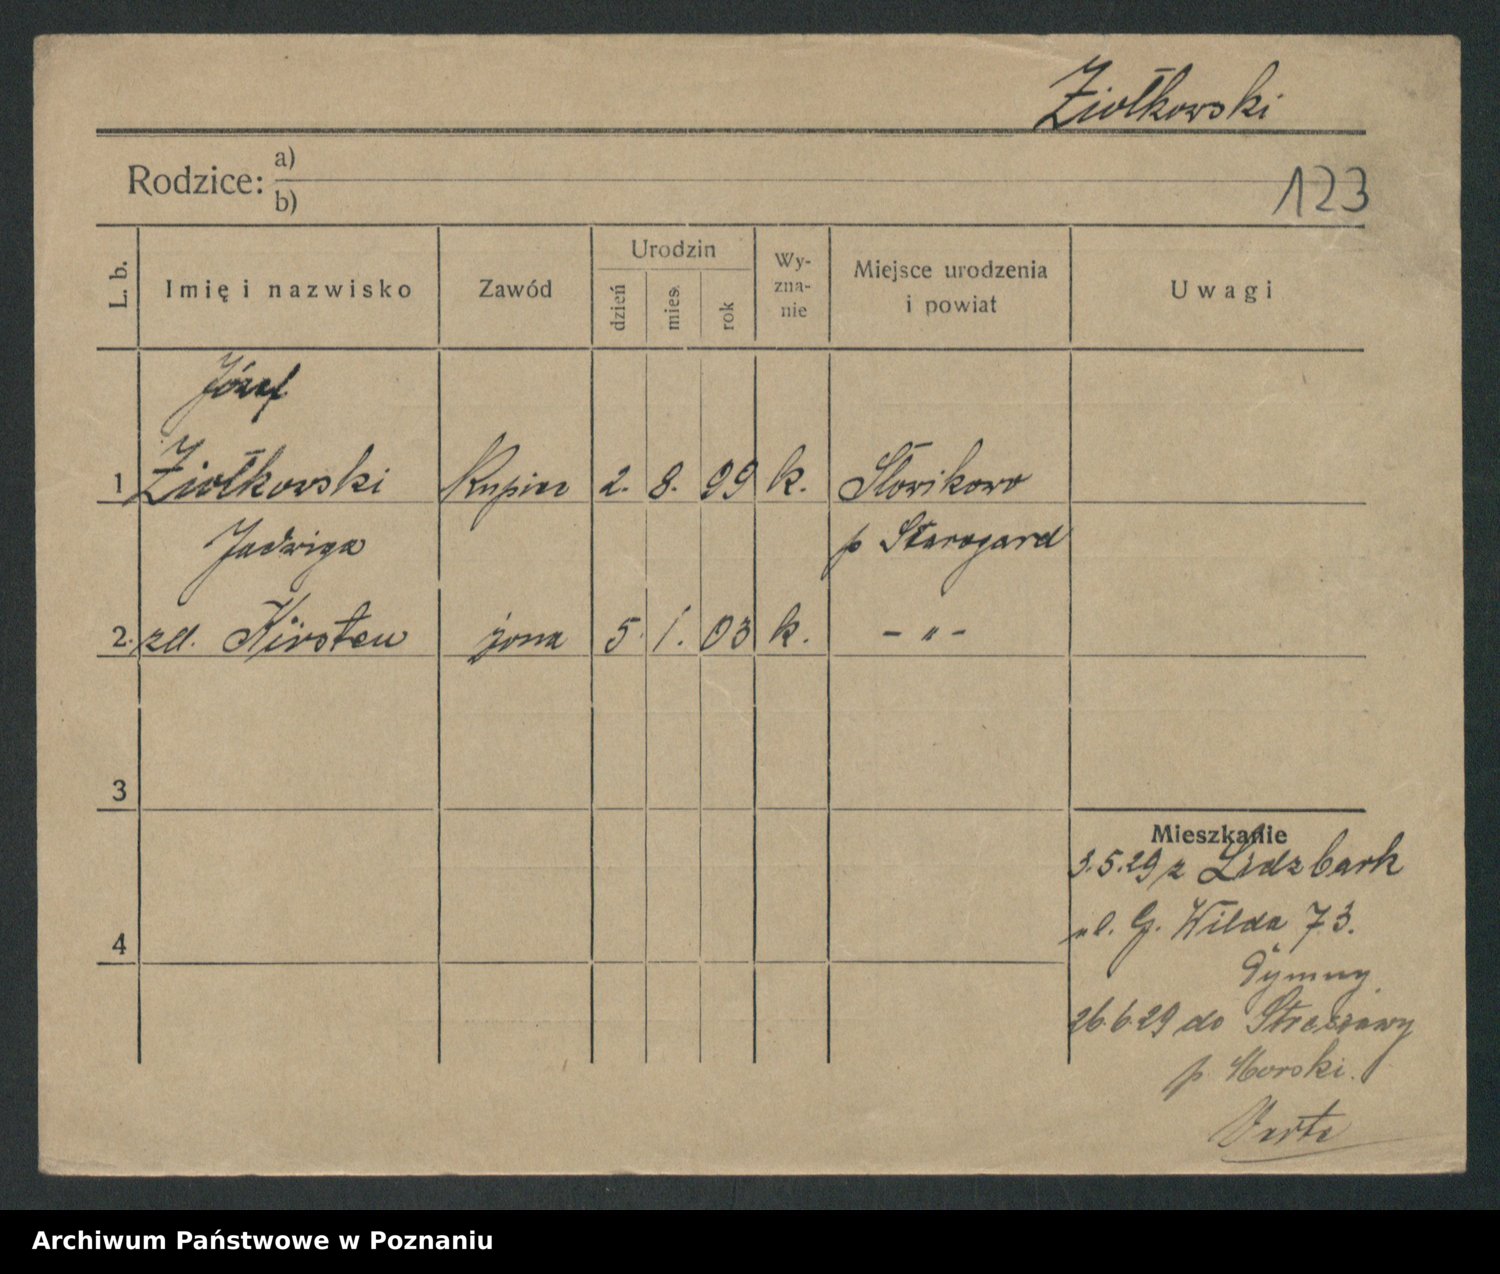 Ziółkowski
Rodzice: a)
b)
123
L. b.
Imię i nazwisko
Zawód
Urodzin
dzień
mies.
rok
Wy-
zna-
nie
Miejsce urodzenia
i powiat
Uwagi
Józef
1 Ziółkowski Kupiec 2. 8. 99 k. Słowikowo
Jadwiga p Starogard
2. zd. Kirsten żona 5. 1. 03 k. - " -
3
4
Mieszkanie
3.5.29 z Lidzbark
ul. G. Wilda 73.
26.6.29 do
p Morski.
Verte
Archiwum Państwowe w Poznaniu